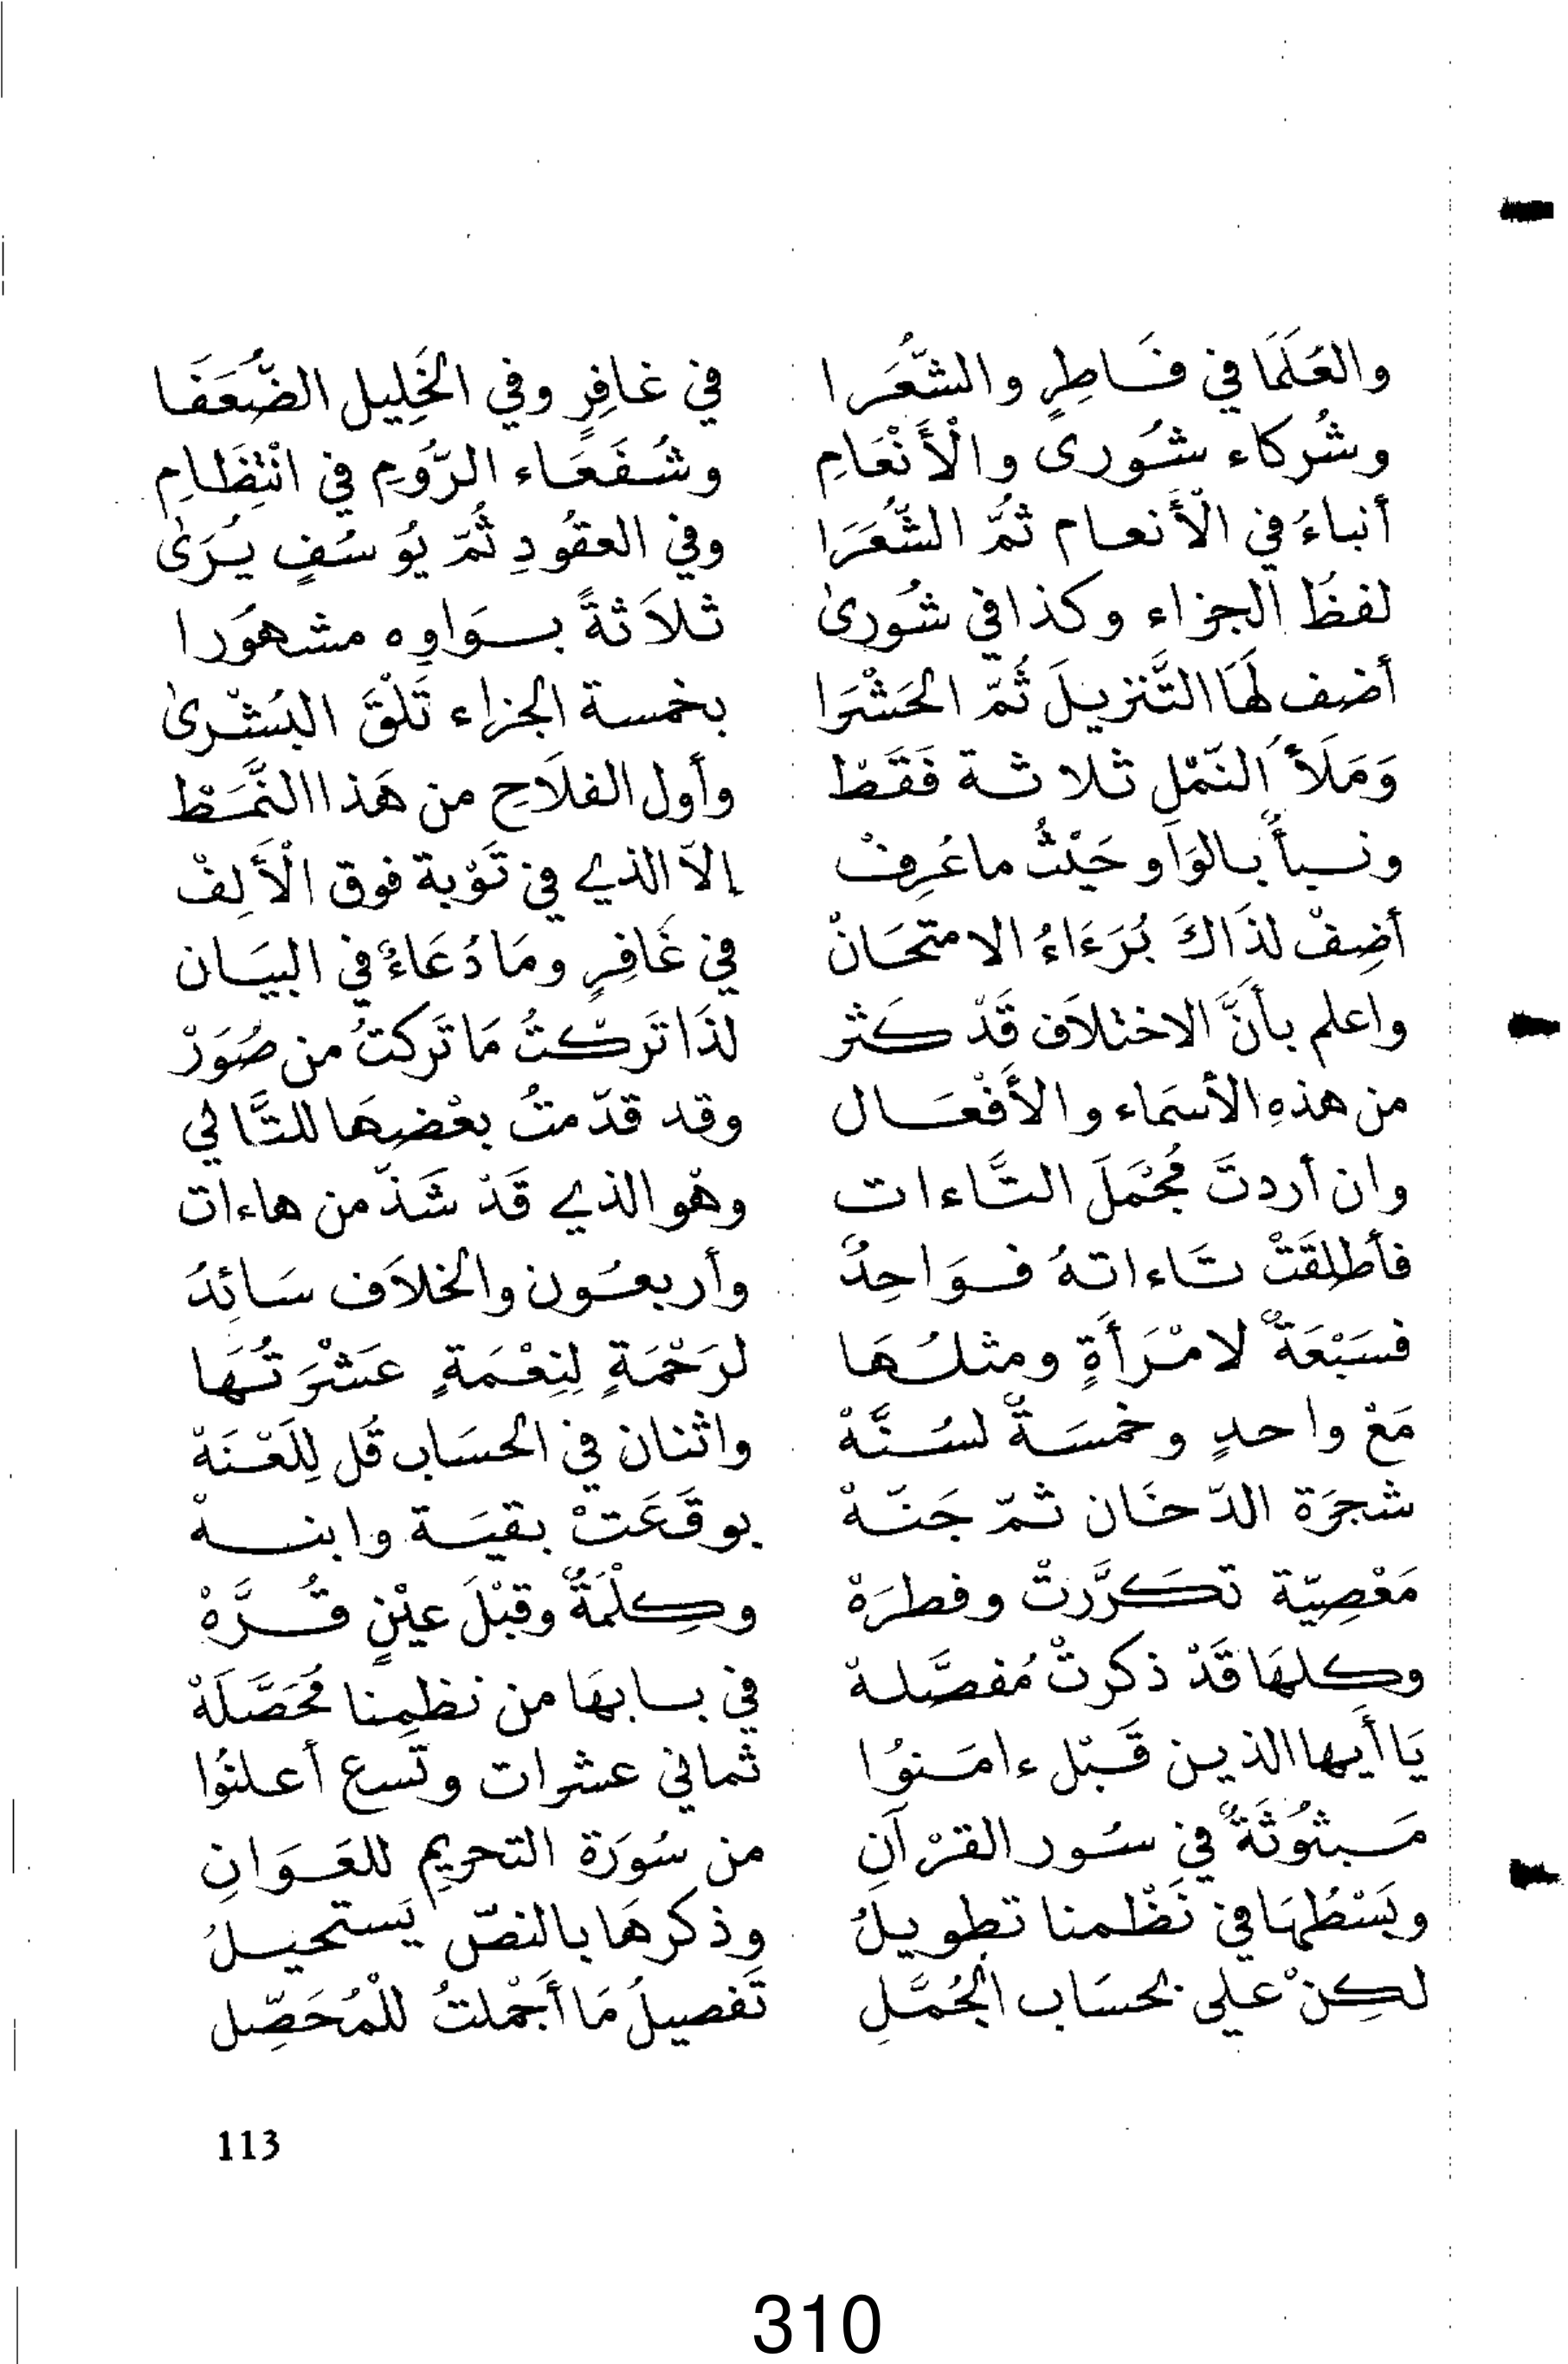 والعُلَمَا في فَاطِرٍ والشُّعَرا في غافِرٍ وفي الخَلِيل الضُّعَفَا
وشُركاء شُورى والْأَنْعَامِ وشُفَعَاء الرُّومِ في انْتِظَامِ
أنباءُ في الْأَنعام ثُمَّ الشُّعَرَا وفي العقُودِ ثُمّ يُوسُفٍ يُرَىٰ
لفظَ الجزاء وكذا في شُورىٰ ثلاَثةً بوَاوِه مشهوَرا
أضف لَهَا التَّنزيلَ ثُمّ الحَشْرَا بخمسة الجزاء تَلْقَ البُشْرىٰ
وَمَلَأُ النّمْلِ ثلاثة فَقَطْ وأول الفلَاحِ من هَذا النَّمَطْ
ونبأٌ بالوَاو حَيْثُ ما عُرِفْ إلاّ الذي في تَوْبة فوق الْأَلِفْ
أضِفْ لذَاكَ بُرَءَاءُ الامتحَانْ في غَافِرٍ ومَا دُعَاءُ في البيَان
واعلم بأنَّ الاختلاَف قَدْ كَثر لذَا تَركْتُ مَا تَركتُ من صُوَرْ
من هذهِ الأسمَاء والأَفْعَال وقد قدّمتُ بعْضهَا للتَّالي
وان أردتَ مُجْمَلَ التَّاءات وهْو الذي قَدْ شَذّ من هاءات
فأطلِقَتْ تَاءاتهُ فوَاحِدٌ وأربعُون والخلاَف سَائِدُ
فسَبْعَةٌ لامْرَأَةٍ ومثلُهَا لرَحْمَةٍ لِنِعْمَةٍ عَشْرَتُهَا
مَعْ واحدٍ وخمسَةٌ لسُنَّهْ واثنان في الحسَاب قُل لِلَعْنَهْ
شجرَة الدّخَان ثمّ جَنّهْ بوقَعَتْ بقيَة وابنهْ
مَعْصِيّة تكَرَّرتْ وفطرَهْ وكِلْمَةٌ وقبْلَ عيْنٍ قُرَّهْ
وكلهَا قَدْ ذكرتْ مُفصَّلهْ في بابهَا من نظمِنا مُحَصَّلَهْ
يَا أَيها الذين قَبْل ءامَنوُا ثماني عشرات وتسع أعلنُوا
مَبثوُثَةٌ في سُور القرْآنِ من سُورَة التحريمِ للعَوَانِ
وبَسْطُهَا في نَظْمنا تطويلُ وذكرهَا بالنصّ يَستحيلُ
لكِنْ على بحسَاب الجُمَّلِ تَفصيلُ مَا أَجْملتُ للْمُحَصِّل
113
310